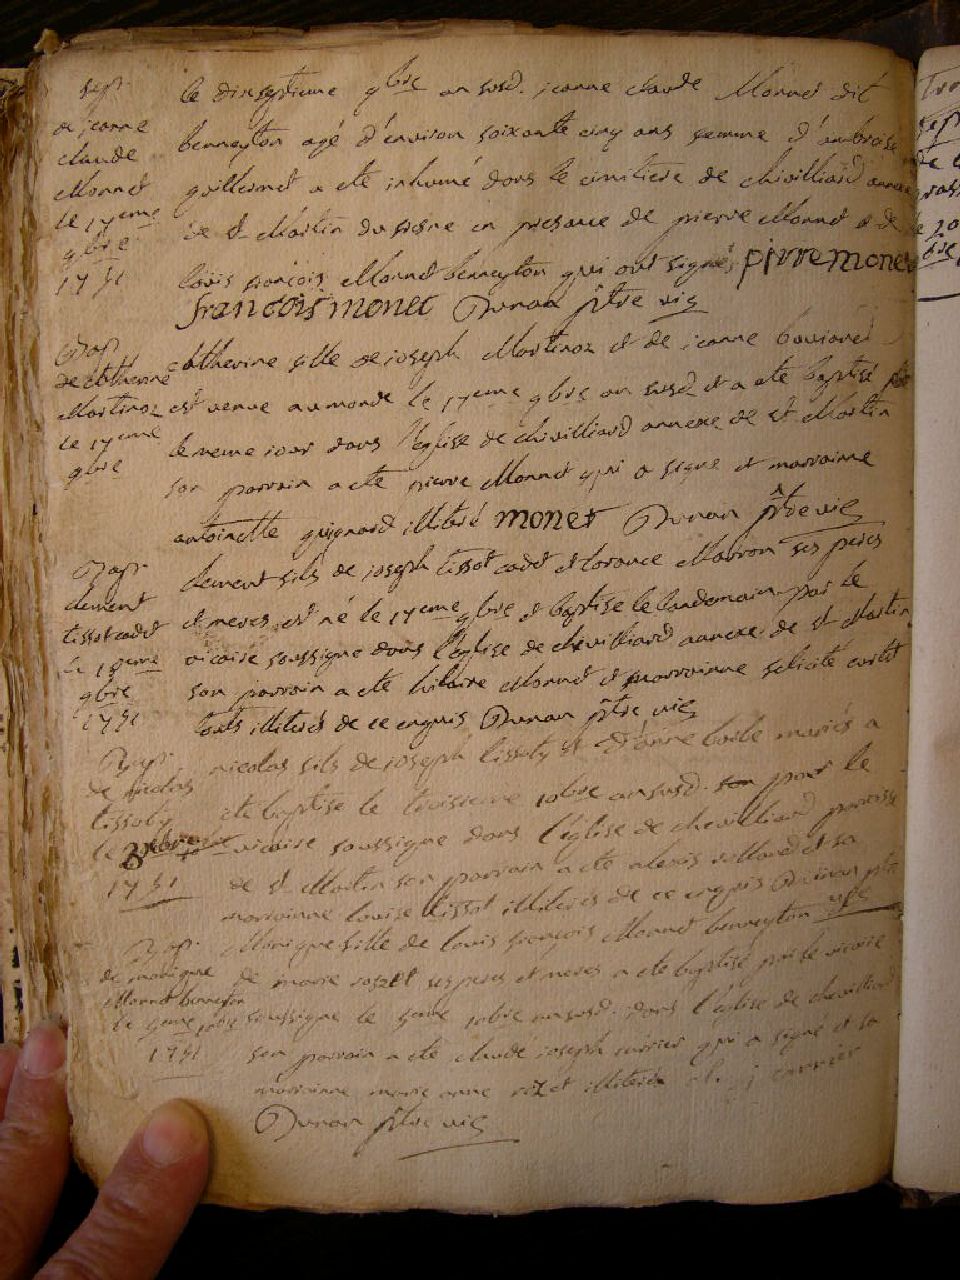 sep.
de jeanne
claude
Monnet
le 17eme
9bre
1751
le dixseptieme 9bre an susd. jeanne claude Monnet dit
benneyton agé d'environ soixante cinq ans femme d'ambroise
guillermet a eté inhumé dans le cimitiere de chivilliard annexe
de st Martin du fresne en presance de pierre Monnet et de
louis françois Monnet benneyton qui ont signés pirre monet
francois monet Dunan ptre vic
Bap.
de Catherine
Martinaz
le 17eme
9bre
Catherine fille de joseph Martinaz et de jeanne
est venue au monde le 17eme 9bre an susd. et a eté baptisé
le meme jour dans l'eglise de chivilliard annexe de st Martin
son parrain a eté pierre Monnet qui a signe et marrainne
antoinette guignard illitiré monet Dunan ptre vic
Bap.
clement
tissot cadet
le 18eme
9bre
1751
clement fils de joseph tissot cadet et Marron ses peres
et meres est né le 17eme 9bre et baptise le landemain par le
vicaire soussigne dans l'eglise de chevilliard annexe de st Martin
son parrain a eté hilaire Monnet et marrainne felicité
touts illiterés de ce enquis Dunan ptre vic
Bap.
de nicolas
tissot
le
1751
nicolas fils de joseph tissot et d'anne mariés a
eté baptise le troisieme 10bre an susd. par le
vicaire soussigne dans l'église de chevilliard
de st Martin son parrain a eté alexis et sa
marrainne louise tissot illiterés de ce enquis Dunan ptre
vic
Bap.
de monique
Monnet benneyton
le 9eme 10bre
1751
Monique fille de louis françois Monnet benneyton
de marie rozet ses peres et meres a eté baptisé par le vicaire
soussigne le 9eme 10bre an susd. dans l'église de chevilliard
son parrain a eté claude joseph currier qui a signé et sa
marrainne marie anne rozet illiterée cl. j currier
Dunan ptre vic